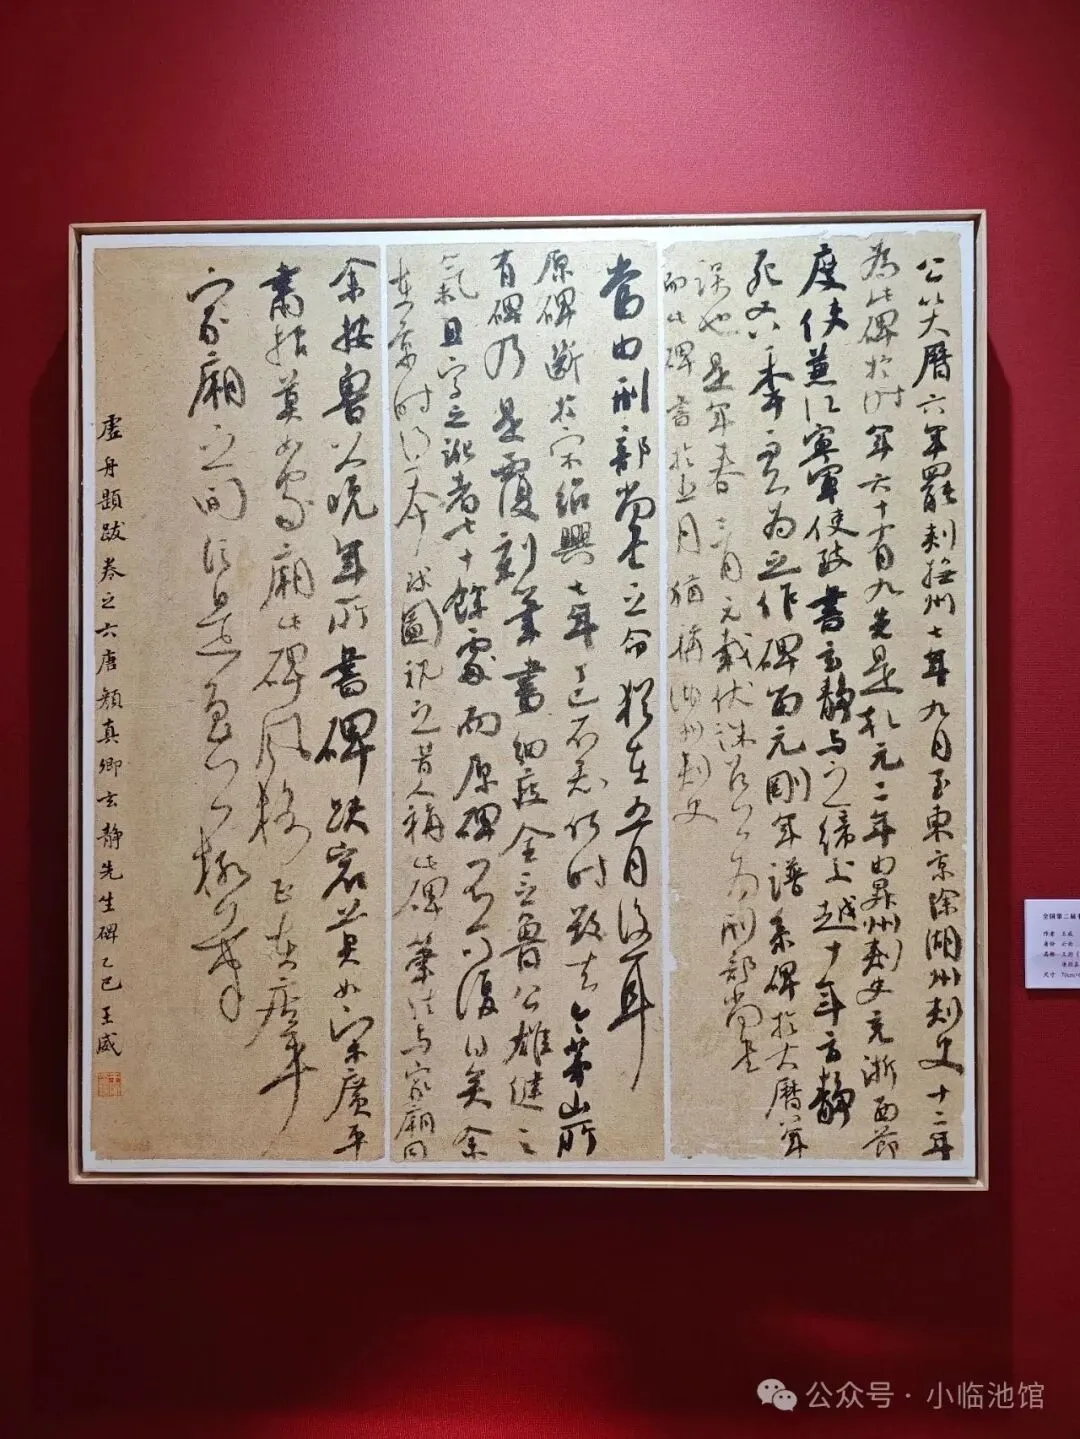 公以大曆六年罷刺撫州七年九月至東京除湖州刺史十二年
為此碑於時年六十有九先是乾元二年由昇州刺史充浙西節
度使兼江寧軍使致書玄靜與之締交越十年玄靜
死又八年為之作碑留元剛年譜系碑於大曆年
誤也是年春三月元載伏誅召公為刑部尚書
而此碑書於五月猶稱湖州刺史
當由刑部尚書之命猶在五月後耳
原碑斷於宋紹興七年丁巳不知何時毀去今茅山所
有碑乃是覆刻筆畫細瘦全乏魯公雄健之
氣且字之訛者七十餘處而原碑不可復得矣余
在京時得一本圖視之昔人稱此碑筆法與家廟同
余按魯公晚年所書碑跌宕莫如宋廣平
肅括莫如家廟此碑風格正在廣平
家廟之間信是魯公極筆
虛舟題跋卷之六唐顏真卿玄靜先生碑乙巳王威
全国第二届
作者 王威
尺寸 70cm
公众号·小临池馆